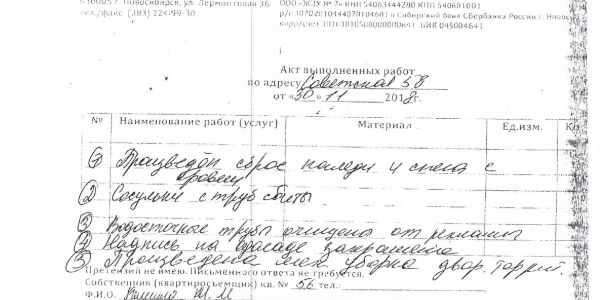 630005 г. Новосибирск, ул. Лермонтова 36
тел./факс (383) 224-99-30
ООО «ЖЭУ № 7» ИНН 54063444280 КПП 540601001
р/с 40702810444070104601 в Сибирский банк Сбербанка России г. Новос
корр/счет 30101810500000000641 БИК 045004641
Акт выполненных работ
по адресу Советская 58
от «30» 11 2018г.
№ Наименование работ (услуг) Материал Ед.изм. Ко
1 Произведён сброс наледи и снега с
кровли
2 Сосульки с труб сбиты
3 Водосточные трубы очищены от рекламы
4 Надпись на фасаде закрашена
5 Произведена мех. уборка двор. террит.
Претензий не имею. Письменного ответа не требуется.
Собственник (квартиросъемщик) кв. № 56 тел.:
Ф.И.О.